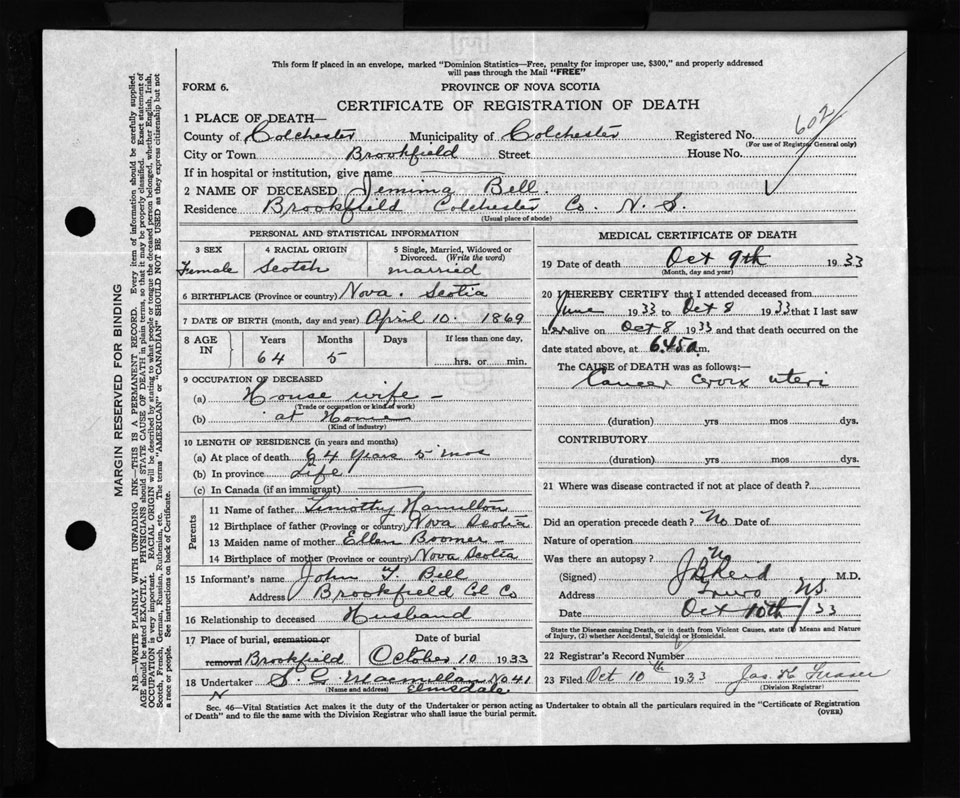 This form if placed in an envelope, marked "Dominion Statistics—Free, penalty for improper use, $300," and properly addressed
will pass through the Mail "FREE"
FORM 6. PROVINCE OF NOVA SCOTIA
CERTIFICATE OF REGISTRATION OF DEATH
1 PLACE OF DEATH—
County of Colchester Municipality of Colchester Registered No. 602
(For use of Registrar General only)
City or Town Brookfield Street House No.
If in hospital or institution, give name
2 NAME OF DECEASED Jemima Bell.
Residence Brookfield Colchester Co. N. S.
(Usual place of abode)
PERSONAL AND STATISTICAL INFORMATION
3 SEX 4 RACIAL ORIGIN 5 Single, Married, Widowed or
Divorced. (Write the word)
Female Scotch married
6 BIRTHPLACE (Province or country) Nova. Scotia
7 DATE OF BIRTH (month, day and year) April 10. 1869
8 AGE IN Years Months Days If less than one day,
64 5 hrs. or min.
9 OCCUPATION OF DECEASED
(a) House wife –
(Trade or occupation or kind of work)
(b) at Home
(Kind of industry)
10 LENGTH OF RESIDENCE (in years and months)
(a) At place of death 64 Years 5 mos
(b) In province Life
(c) In Canada (if an immigrant)
Parents
11 Name of father Timothy Hamilton
12 Birthplace of father (Province or country) Nova Scotia
13 Maiden name of mother Ellen Boomer –
14 Birthplace of mother (Province or country) Nova Scotia
15 Informant's name John T. Bell
Address Brookfield Col Co
16 Relationship to deceased Husband
17 Place of burial, cremation or Date of burial
removal Brookfield October 10 1933
18 Undertaker S. G. Macmillan No 41
(Name and address) Elmsdale
N
MEDICAL CERTIFICATE OF DEATH
19 Date of death Oct 9th 1933
(Month, day and year)
20 I HEREBY CERTIFY that I attended deceased from
June 1933 to Oct 8 1933 that I last saw
her alive on Oct 8 1933 and that death occurred on the
date stated above, at 6.45 a.m.
The CAUSE of DEATH was as follows:—
Cancer Cervix uteri
(duration) yrs mos dys.
CONTRIBUTORY
(duration) yrs mos dys.
21 Where was disease contracted if not at place of death?
Did an operation precede death? No Date of
Nature of operation
Was there an autopsy? No
(Signed) J B Reid M.D.
Address Truro NS.
Date Oct 10th / 33
State the Disease causing Death, or in death from Violent Causes, state (1) Means and Nature
of Injury, (2) whether Accidental, Suicidal or Homicidal.
22 Registrar's Record Number
23 Filed Oct 10th 1933 Jas. K Fraser
(Division Registrar)
Sec. 46—Vital Statistics Act makes it the duty of the Undertaker or person acting as Undertaker to obtain all the particulars required in the "Certificate of Registration
of Death" and to file the same with the Division Registrar who shall issue the burial permit.
(OVER)
MARGIN RESERVED FOR BINDING
N.B.—WRITE PLAINLY WITH UNFADING INK—THIS IS A PERMANENT RECORD. Every item of information should be carefully supplied.
AGE should be stated EXACTLY. PHYSICIANS should STATE CAUSE OF DEATH in plain terms, so that it may be properly classified. Exact statement of
OCCUPATION is very important. RACIAL ORIGIN will be described by stating to what people or tongue the deceased person belonged, whether English, Irish,
Scotch, French, German, Russian, Ruthenian, etc. The terms "AMERICAN" or "CANADIAN" SHOULD NOT BE USED as they express citizenship but not
a race or people. See instructions on back of Certificate.